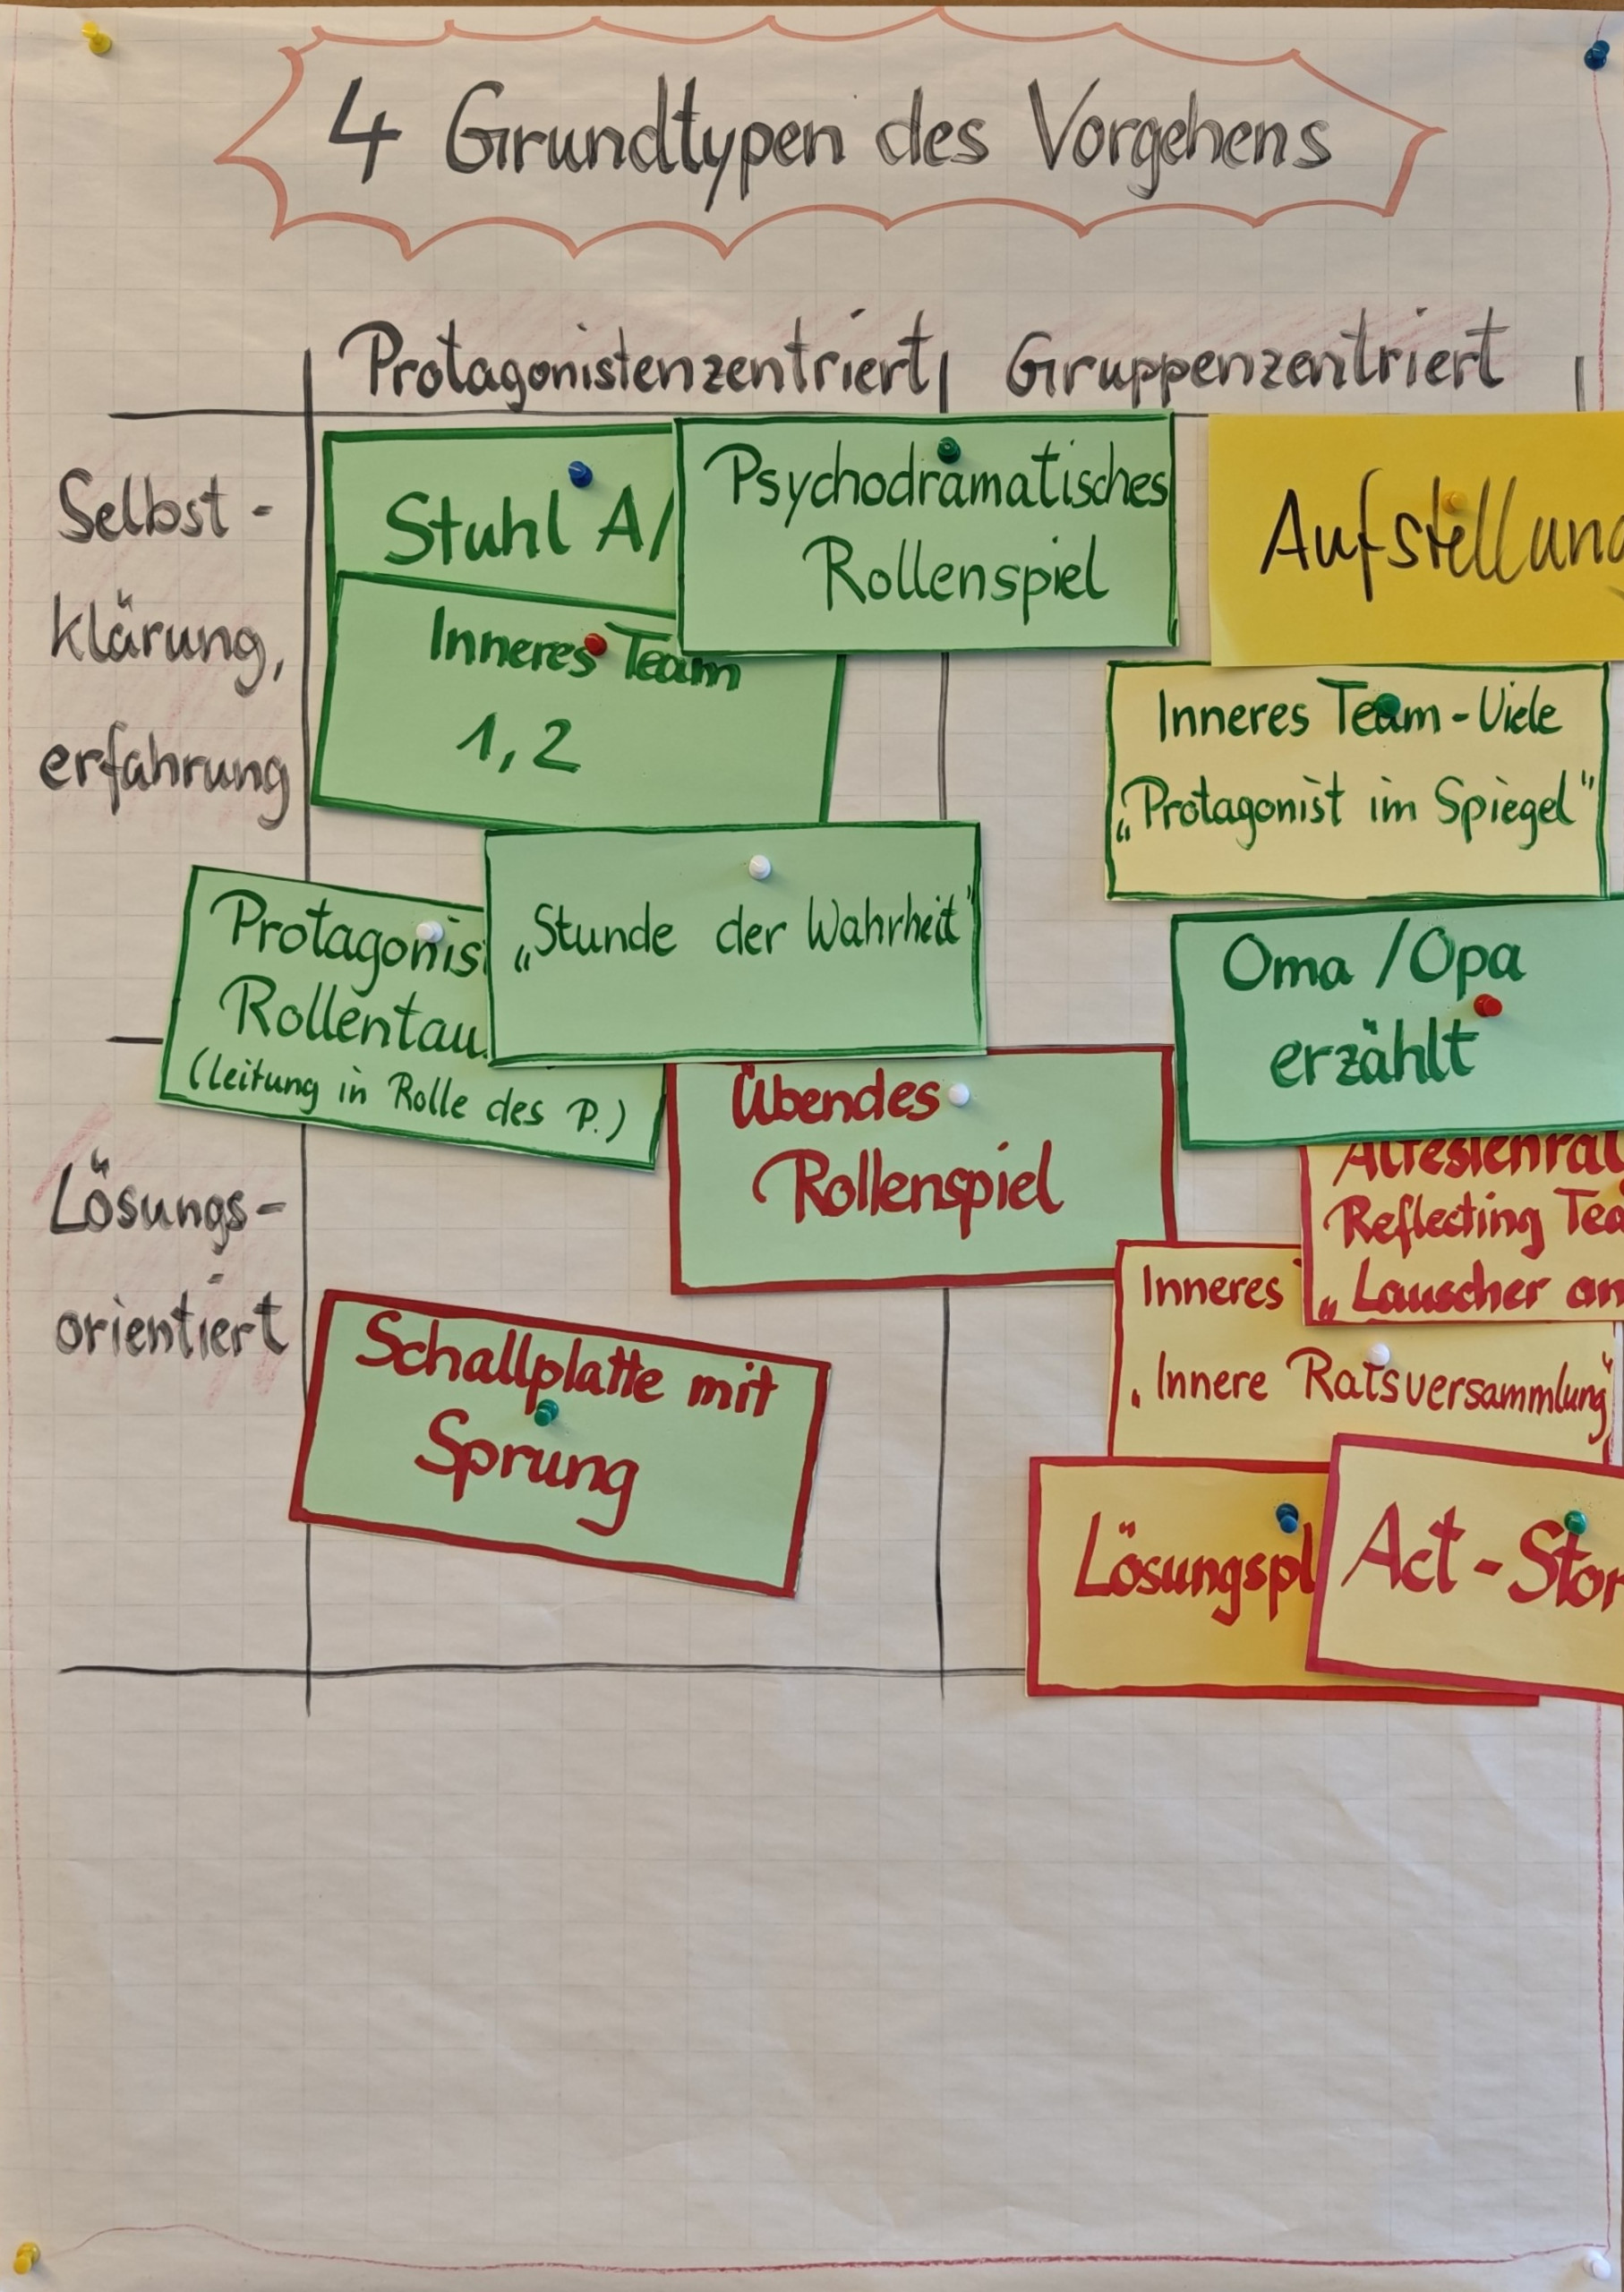 4 Grundtypen des Vorgehens
Protagonistenzentriert
Gruppenzentriert
Selbst-
klärung,
erfahrung
Stuhl A/
Inneres Team
1, 2
Psychodramatisches
Rollenspiel
Aufstellung
Inneres Team - Viele
„Protagonist im Spiegel"
Protagonis
Rollentau
(Leitung in Rolle des P.)
„Stunde der Wahrheit"
Oma / Opa
erzählt
Lösungs-
orientiert
Übendes
Rollenspiel
Ältestenrat
Reflecting Tea
„Lauscher an
Inneres
„Innere Ratsversammlung"
Schallplatte mit
Sprung
Lösungspl
Act - Stor